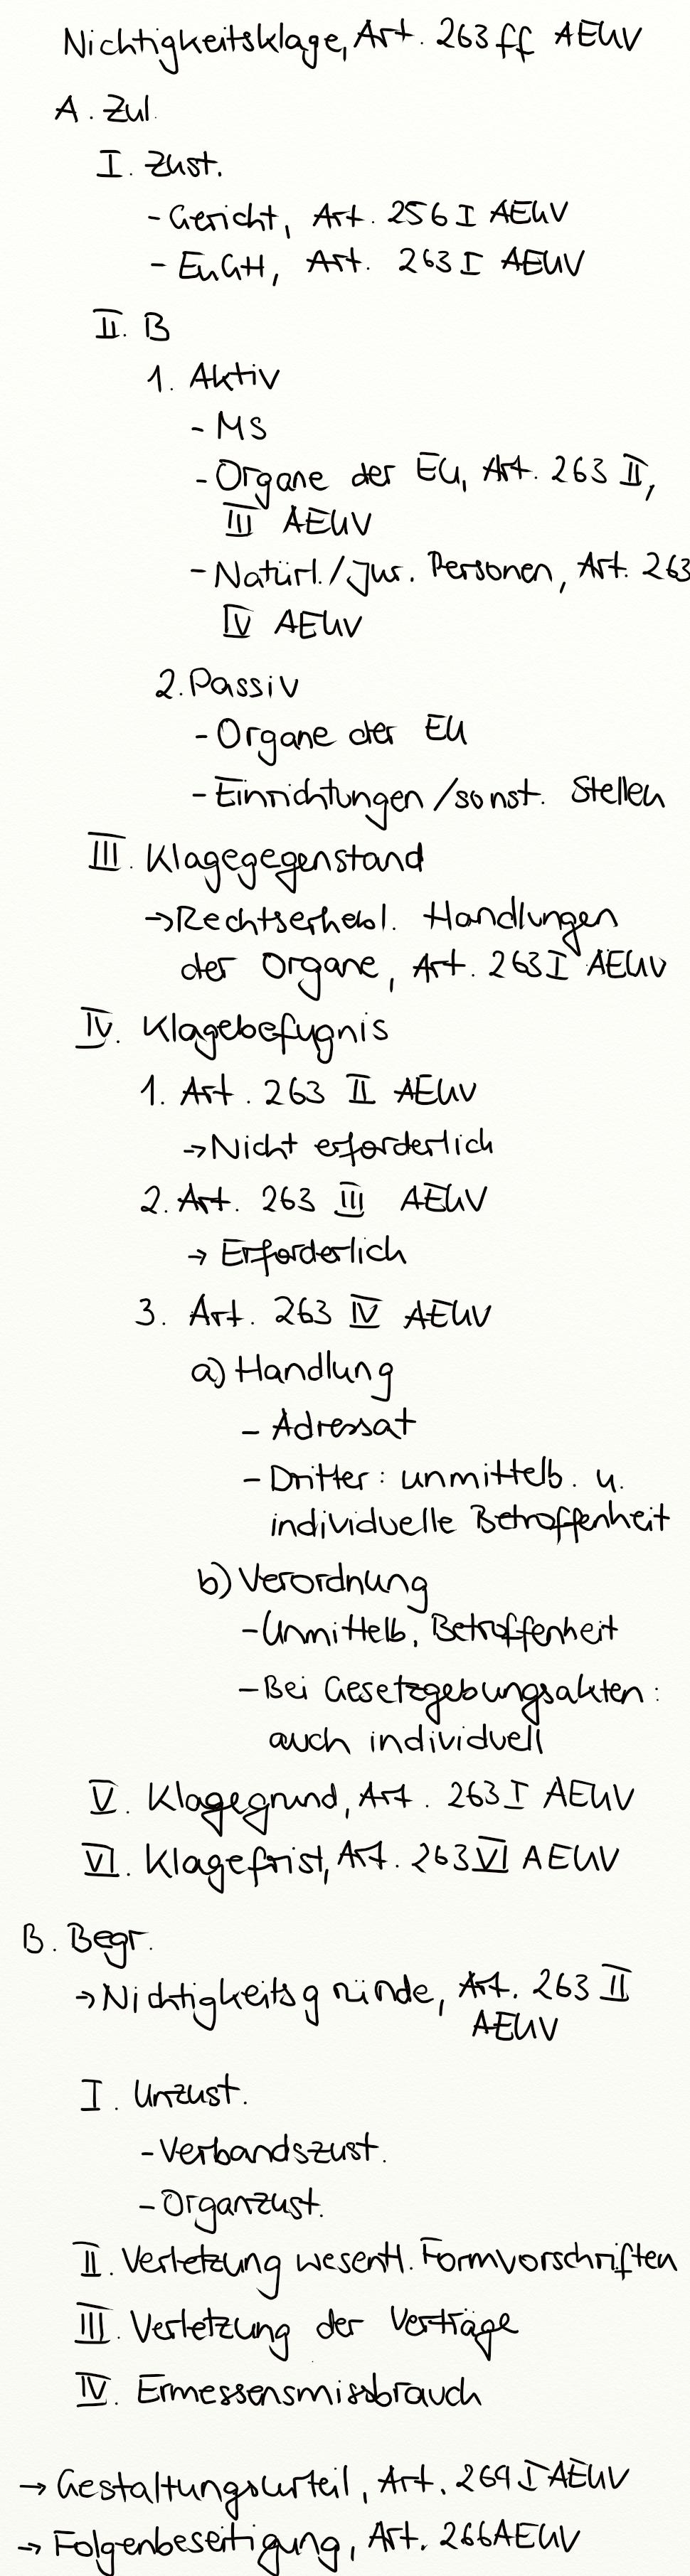 Nichtigkeitsklage, Art. 263 ff AEUV
A. Zul.
I. Zust.
- Gericht, Art. 256 I AEUV
- EuGH, Art. 263 I AEUV
II. B
1. Aktiv
- MS
- Organe der EU, Art. 263 II,
III AEUV
- Natürl./Jur. Personen, Art. 263
IV AEUV
2. Passiv
- Organe der EU
- Einrichtungen/sonst. Stellen
III. Klagegegenstand
→ Rechtserhebl. Handlungen
der Organe, Art. 263 I AEUV
IV. Klagebefugnis
1. Art. 263 II AEUV
→ Nicht erforderlich
2. Art. 263 III AEUV
→ Erforderlich
3. Art. 263 IV AEUV
a) Handlung
- Adressat
- Dritter: unmittelb. u.
individuelle Betroffenheit
b) Verordnung
- Unmittelb. Betroffenheit
- Bei Gesetzgebungsakten:
auch individuell
V. Klagegrund, Art. 263 I AEUV
VI. Klagefrist, Art. 263 VI AEUV
B. Begr.
→ Nichtigkeitsgründe, Art. 263 II
AEUV
I. Unzust.
- Verbandszust.
- Organzust.
II. Verletzung wesentl. Formvorschriften
III. Verletzung der Verträge
IV. Ermessensmissbrauch
→ Gestaltungsurteil, Art. 264 I AEUV
→ Folgenbeseitigung, Art. 266 AEUV